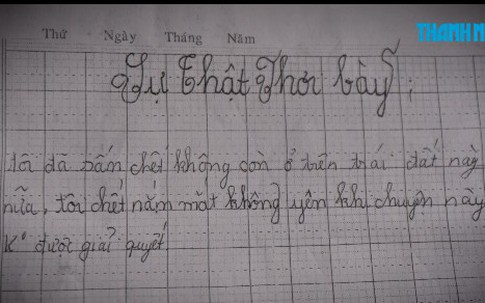 THANH N
Thứ Ngày Tháng Năm
Sự thật Phơi bày :
tôi đã chết không còn ở trên trái đất này
nữa, tôi chết nắm mắt không yên khi chuyện này
K° được giải quyết